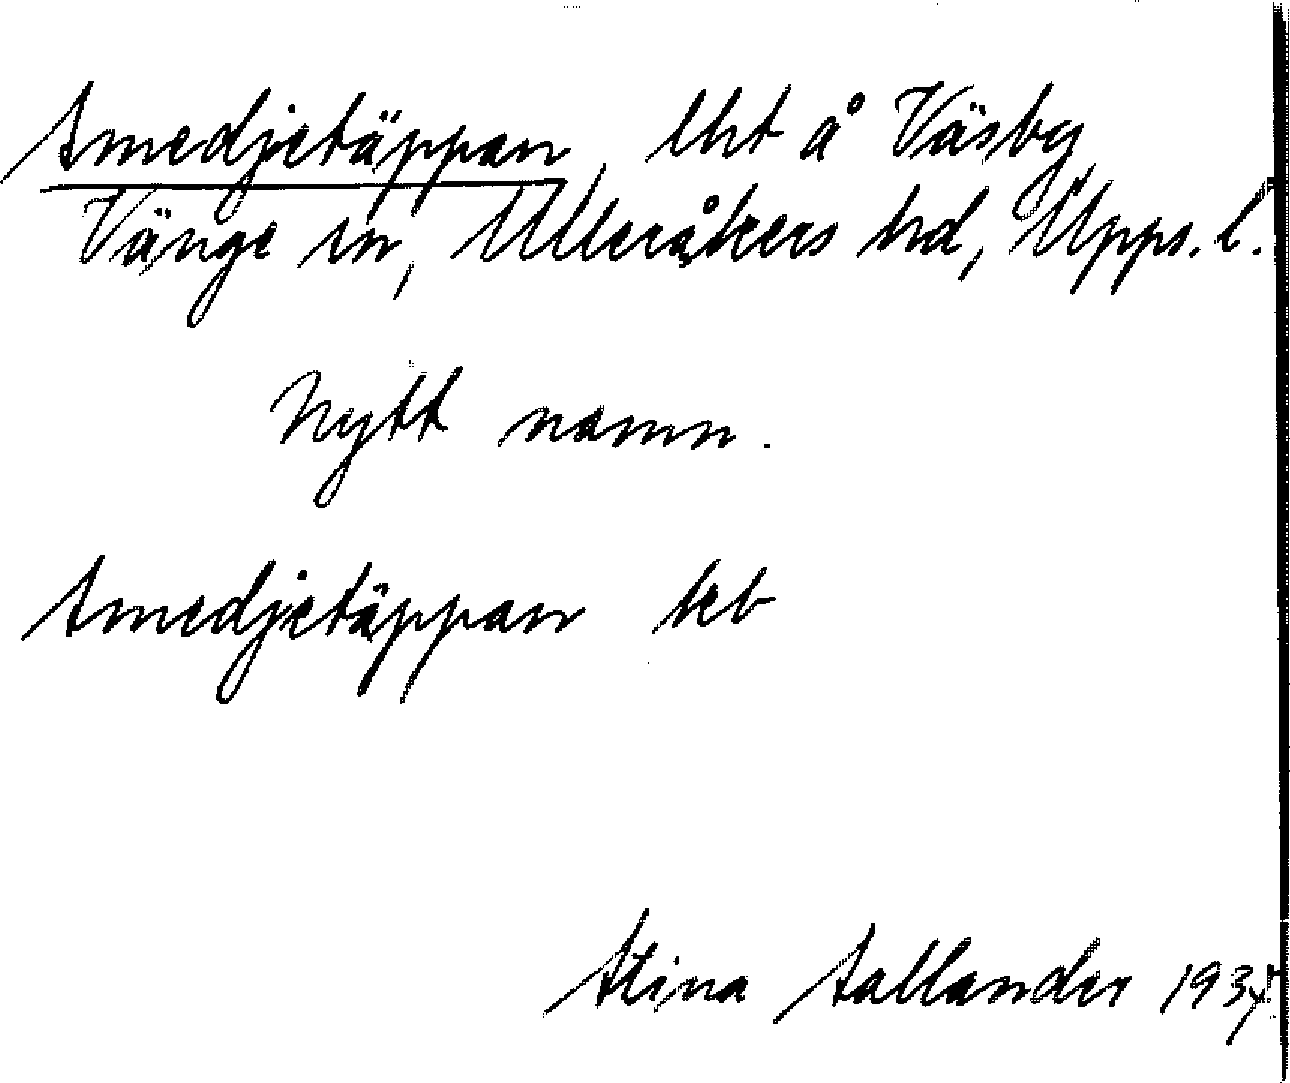 Smedjetäppan, lht å Väsby
Vänge sn, Ulleråkers hd, Upps. l.
Nytt namn.
Smedjetäppan seb
Stina Sallander 1934